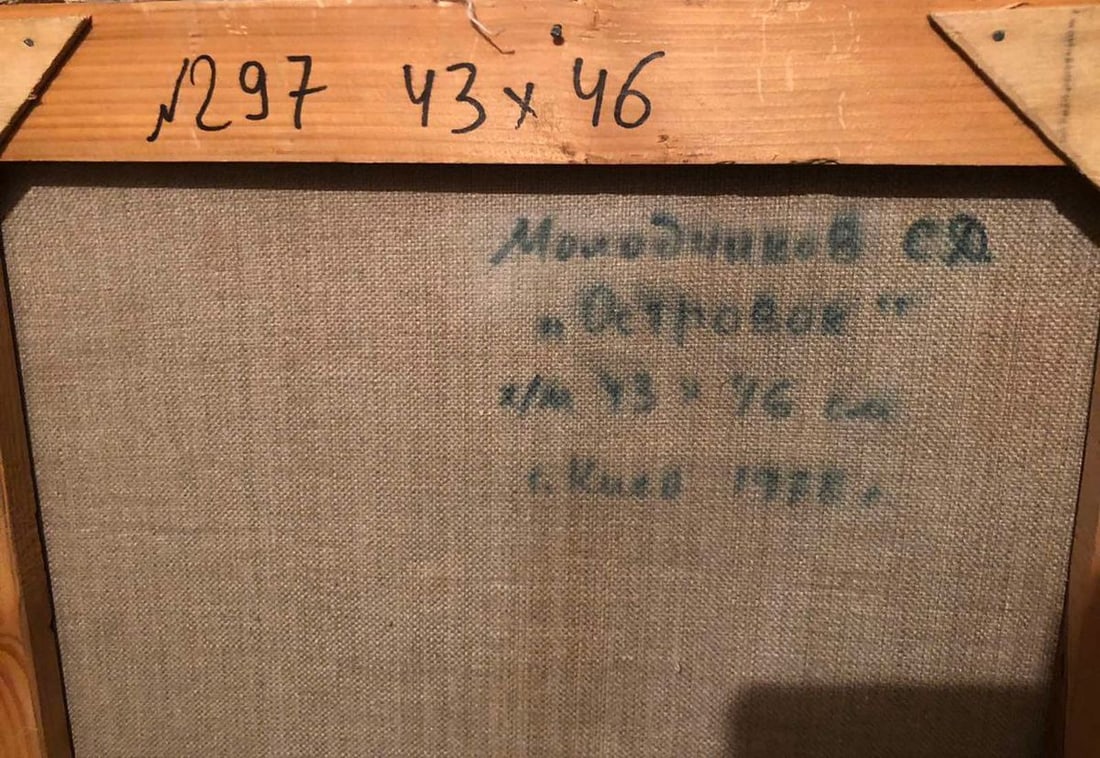 №297 43х46
Молодчиков СД
„Островок“
х/м 43 х 46 см
г. Киев 1988 г.